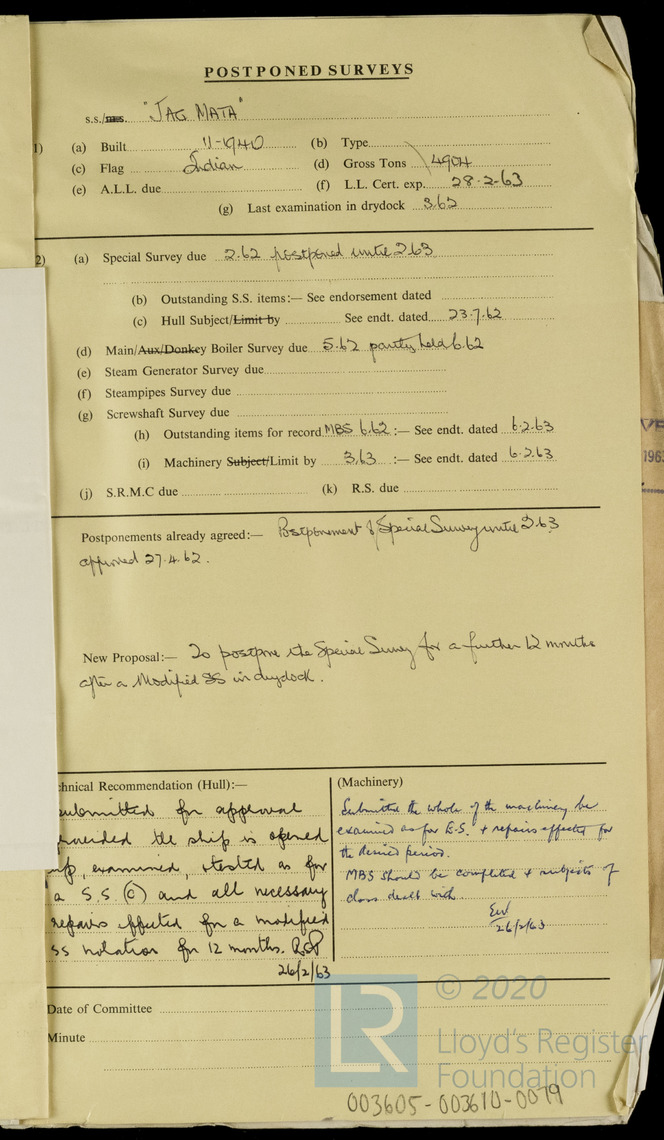 POSTPONED SURVEYS
s.s./ms. "JAG MATA"
1) (a) Built 11-1940 (b) Type
(c) Flag Indian (d) Gross Tons 4904
(e) A.L.L. due (f) L.L. Cert. exp. 28-2-63
(g) Last examination in drydock 3.62
2) (a) Special Survey due 2.62 postponed until 2.63
(b) Outstanding S.S. items:— See endorsement dated
(c) Hull Subject/Limit by See endt. dated 23.7.62
(d) Main/Aux/Donkey Boiler Survey due 5.62 partly held 6.62
(e) Steam Generator Survey due
(f) Steampipes Survey due
(g) Screwshaft Survey due
(h) Outstanding items for record MBS 6.62 :— See endt. dated 6.2.63
(i) Machinery Subject/Limit by 3.63 :— See endt. dated 6.2.63
(j) S.R.M.C due (k) R.S. due
1963
Postponements already agreed:— Postponement of Special Survey until 2.63
approved 27.4.62.
New Proposal:— To postpone the Special Survey for a further 12 months
after a Modified SS in drydock.
chnical Recommendation (Hull):—
submitted for approval
provided the ship is opened
up, examined, & tested as for
a S.S (c) and all necessary
repairs effected for a modified
SS notation for 12 months. RSP
26/2/63
(Machinery)
Submitted the whole of the machinery be
examined as for E.S. + repairs effected for
the desired period.
MBS should be completed + subjects of
class dealt with
26/2/63
Date of Committee
Minute
LR
© 2020
Lloyd's Register
Foundation
003605-003610-0079